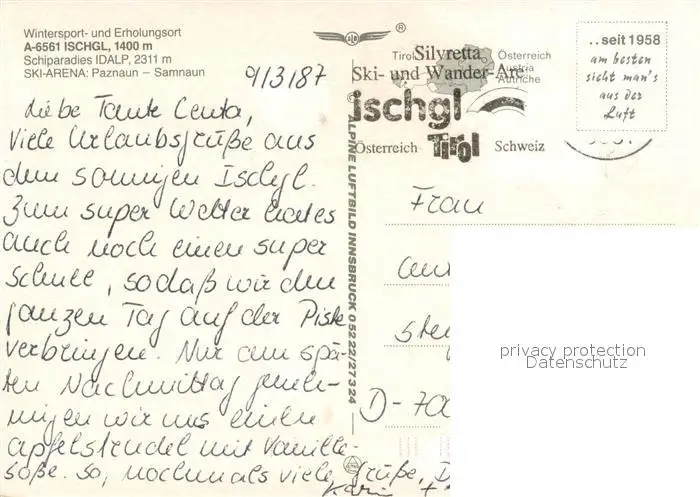 Wintersport- und Erholungsort
A-6561 ISCHGL, 1400 m
Schiparadies IDALP, 2311 m
SKI-ARENA: Paznaun – Samnaun
9/3/87
Liebe Tante Centa,
viele Urlaubsgrüße aus
dem sonnigen Ischgl.
Zum super Wetter hat es
auch noch einen super
Schnee, sodaß wir den
ganzen Tag auf der Piste
verbringen. Nur am spä-
ten Nachmittag geneh-
migen wir uns einen
Apfelstrudel mit Vanille-
soße. So, nochmals viele Grüße,
Karin
ALPINE LUFTBILD INNSBRUCK 05222/27324
®
Tirol Silvretta Österreich
Austria
Autriche
Ski- und Wander-Are
ischgl
Österreich Tirol Schweiz
..seit 1958
am besten
sieht man's
aus der
Luft
Frau
D-700
privacy protection
Datenschutz